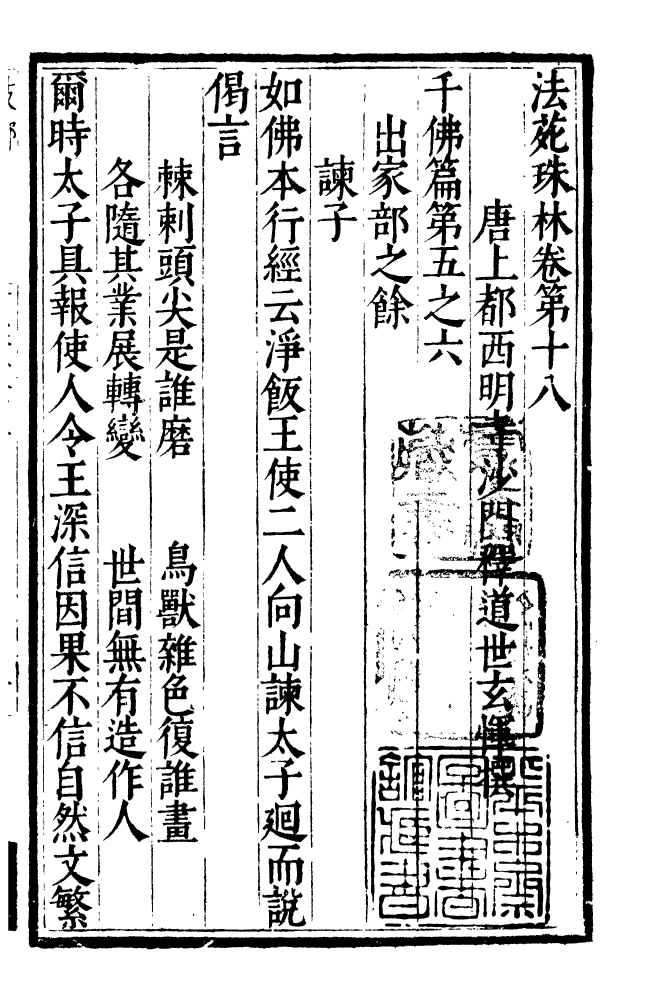 法苑珠林卷第十八
唐上都西明寺沙門釋道世玄惲撰
千佛篇第五之六
出家部之餘
諫子
如佛本行經云淨飯王使二人向山諫太子廻而說
偈言
棘刺頭尖是誰磨　鳥獸雜色復誰畫
各隨其業展轉變　世間無有造作人
爾時太子具報使人令王深信因果不信自然文繁